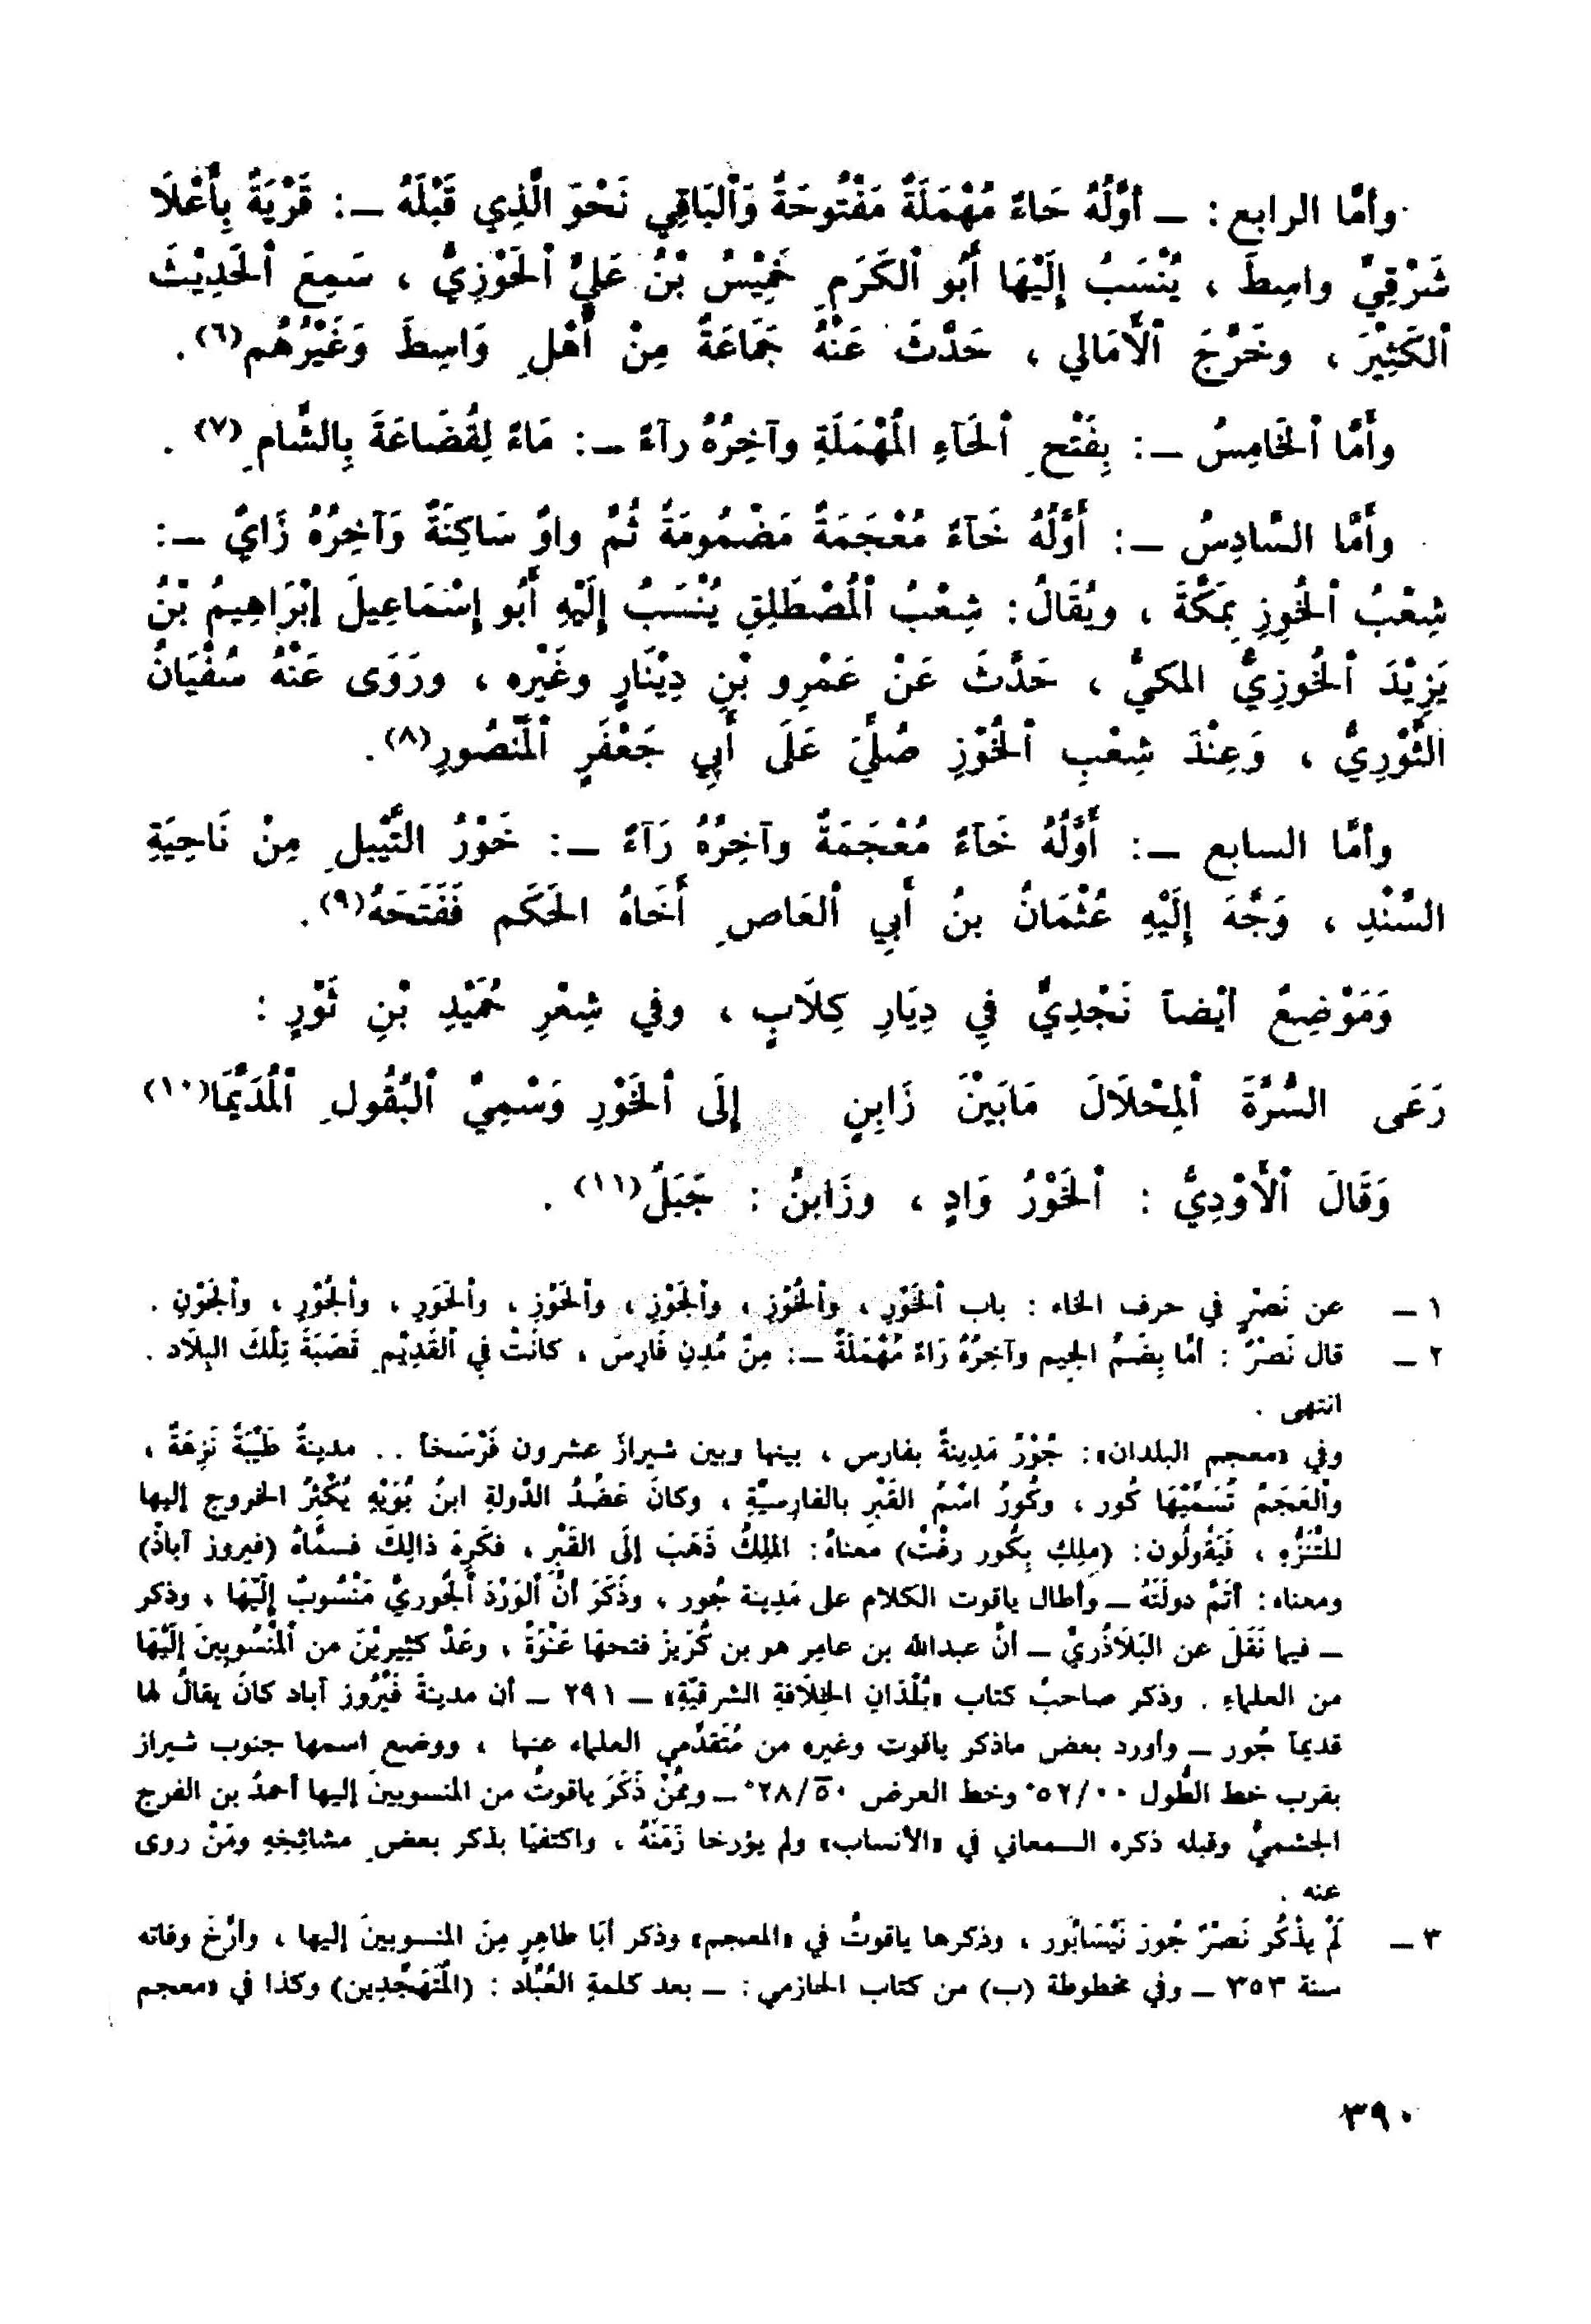 وأمَّا الرابع : ــ أوَّلُهُ حَاءٌ مُهْمَلَةٌ مَفْتُوحَةٌ وَٱلْبَاقِي نَحْوَ الَّذِي قَبْلَهُ ــ : قَرْيَةٌ بِأَعْلَا
شَرْقِيِّ واسِطَ ، يُنْسَبُ إِلَيْهَا أَبُو ٱلْكَرَمِ خَمِيْسُ بْنُ عَلِيٍّ ٱلْحَوْزِيُّ ، سَمِعَ ٱلْحَدِيْثَ
ٱلْكَثِيْرَ ، وخَرَّجَ ٱلْأَمَالي ، حَدَّثَ عَنْهُ جَمَاعَةٌ مِنْ أَهْلِ وَاسِطَ وَغَيْرُهُم(٦) .
وأَمَّا ٱلْخَامِسُ ــ : بِفَتْحِ ٱلْحَآءِ الْمُهْمَلَةِ وآخِرُهُ رآءٌ ــ : مَاءٌ لِقُضَاعَةَ بِالشَّامِ(٧) .
وأَمَّا السَّادِسُ ــ : أَوَّلُهُ خَآءٌ مُعْجَمَةٌ مَضْمُومَةٌ ثُمَّ واوٌ سَاكِنَةٌ وَآخِرُهُ زَايٌ ــ :
شِعْبُ ٱلْخُوزِ بِمَكَّةَ ، ويُقَالُ : شِعْبُ ٱلْمُصْطَلِقِ يُنْسَبُ إِلَيْهِ أَبُو إِسْمَاعِيلَ إِبْرَاهِيمُ بْنُ
يَزِيْدَ ٱلْخُوزِيُّ المكيُّ ، حَدَّثَ عَنْ عَمْرِو بْنِ دِيْنَارٍ وغَيْرِهِ ، ورَوَى عَنْهُ سُفْيَانُ
الثَّوْرِيُّ ، وَعِنْدَ شِعْبِ ٱلْخُوْزِ صُلِّيَ عَلَى أَبِي جَعْفَرٍ ٱلْمَنْصُورِ(٨) .
وأمَّا السابع ــ : أَوَّلُهُ خَآءٌ مُعْجَمَةٌ وآخِرُهُ رَآءٌ ــ : خَوْرُ الدَّيْبلِ مِنْ نَاحِيَةِ
السِّنْدِ ، وَجَّهَ إِلَيْهِ عُثْمَانُ بنُ أَبي ٱلْعَاصِ أَخَاهُ الحَكَم فَفَتَحَهُ(٩) .
وَمَوْضِعٌ أيْضاً نَجْدِيٌّ فِي دِيَارِ كِلَابٍ ، وفي شِعْرِ حُمَيْدِ بْنِ ثَوْرٍ :
رَعَى السُّرَّةَ ٱلْمِحْلَالَ مَابَيْنَ زَابِنٍ إِلَى ٱلْخَوْرِ وَسْمِيَّ ٱلْبُقُولِ ٱلْمُدَيَّمَا(١٠)
وَقَالَ ٱلْأَوْدِيُّ : ٱلْخَوْرُ وَادٍ ، وزَابنُ : جَبَلٌ(١١) .
١ ــ عن نَصْرٍ في حرف الخاء : باب ٱلْخَوْرِ ، وٱلْخُوْزِ ، وٱلْجَوْزِ ، وٱلْحَوْزِ ، وٱلْحَوَرِ ، وٱلْجُوْرِ ، وٱلْجَوْنِ .
٢ ــ قال نَصْرٌ : أمَّا بِضَمِّ الجيم وآخِرُهُ رَاءٌ مُهْمَلَةٌ ــ : مِنْ مُدِنِ فَارِسَ ، كَانَتْ في ٱلْقَدِيْمِ قَصَبَةَ تِلْكَ البِلَاد .
انتهى .
وفي «معجم البلدان» : جُوْرُ مَدِينةٌ بفارس ، بينها وبين شيرازَ عشرون فَرْسَخاً .. مدينةٌ طَيِّبَةٌ نَزِهَةٌ ،
وٱلْعَجَمُ تُسَمِّيْهَا كُور ، وكُورُ اسْمُ القَبْرِ بالفارسيَّةِ ، وكانَ عَضُدُ الدَّولةِ ابنُ بُوَيْهِ يُكْثِرُ الخروج إليها
للتَّنَزُّهِ ، فَيَقُولُون : (ملِكِ بِكُور رفْتْ) معناهُ : الملِكُ ذَهَبَ إلَى القَبْرِ ، فكَرِهَ ذالِكَ فسمَّاهُ (فيروز آباذْ)
ومعناه : أتَمَّ دولَتَهُ ــ وأطال ياقوت الكلام على مَدِينة جُور ، وذَكَرَ أَنَّ ٱلْوَرْدَ ٱلْجُوريَّ مَنْسُوبٌ إِلَيْهَا ، وذكر
ــ فيما نَقَلَ عن البَلَاذُريِّ ــ أنَّ عبدالله بن عامِرِ هو بن كُرَيز فتحهَا عَنْوَةً ، وعَدَّ كثِيرِيْنَ من ٱلْمَنْسُوبِينَ إِلَيْهَا
من العلماءِ . وذكر صاحبُ كتاب «بُلْدَانِ الخِلَافةِ الشرقيّةِ» ــ ٢٩١ ــ أن مدينةَ فَيْرُوز آباد كانَ يقالُ لها
قديماً جُور ــ وأورد بعض ماذكر ياقوت وغيره من مُتَقدِّمي العلماء عنها ، ووضع اسمها جنوب شيراز
بقرب خط الطُّول ٥٢/٠٠° وخط العرض ٢٨/٥٠° ــ وممَّنْ ذَكَرَ ياقوتُ من المنسوبينَ إليها أحمدُ بن الفرج
الجشميُّ وقبله ذكره السمعاني في «الأنساب» ولم يؤرخا زَمَنَهُ ، واكتفيَا بذكر بعضِ مشائِخِهِ ومَنْ روى
عنه .
٣ ــ لَمْ يذْكُر نَصْرٌ جُورَ نَيْسَابُور ، وذكرها ياقوتُ في «المعجم» وذكر أبَا طاهِرٍ مِنَ المنسوبينَ إليها ، وأرَّخَ وفاته
سنة ٣٥٣ ــ وفي مخطوطة (ب) من كتاب الحازمي : ــ بعد كلمةِ العُبَّاد : (الْمُتَهَجِّدِين) وكذا في «معجم
٣٩٠